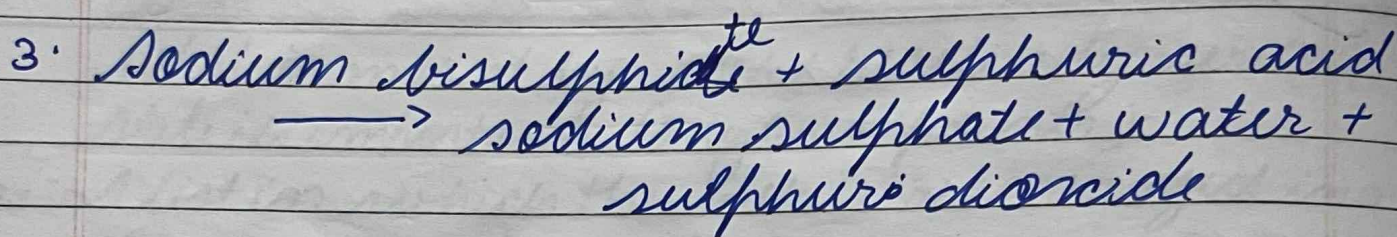 3. Sodium bisulphite + sulphuric acid
→ sodium sulphate + water +
sulphur dioxide